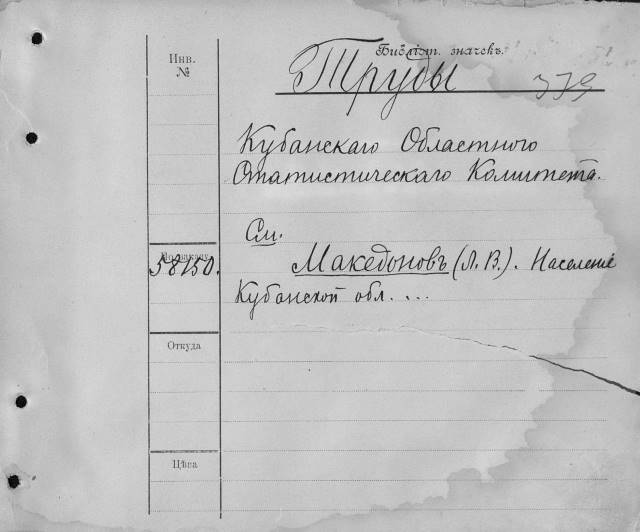 Инв.
№
Библіот. значекъ.
Труды
379
Кубанскаго Областного
Статистическаго Комитета.
См.
58150.
Македоновъ (Л. В.). Населеніе
Кубанской обл. ...
Откуда
Цѣна